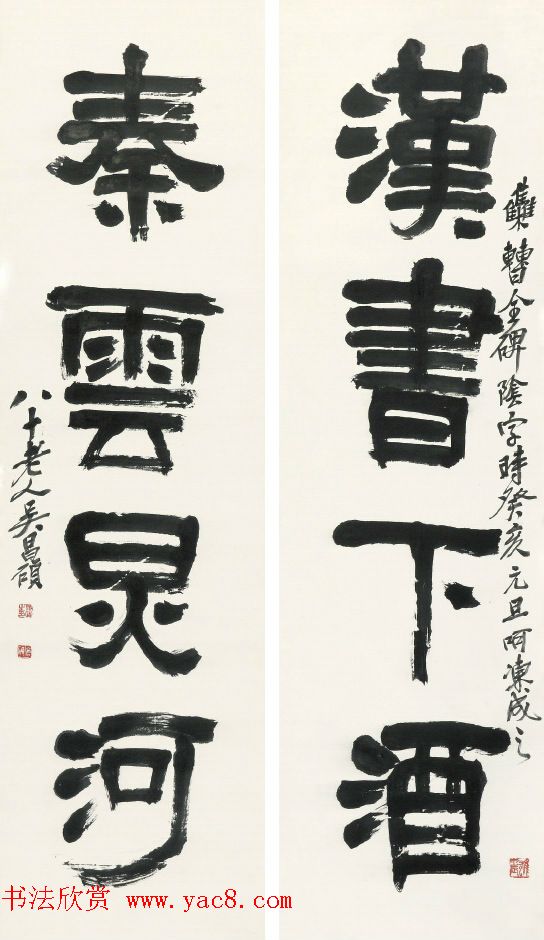 漢書下酒
集曹全碑陰字時癸亥元旦呵凍成之
秦雲炅河
八十老人吳昌碩
书法欣赏 www.yac8.com